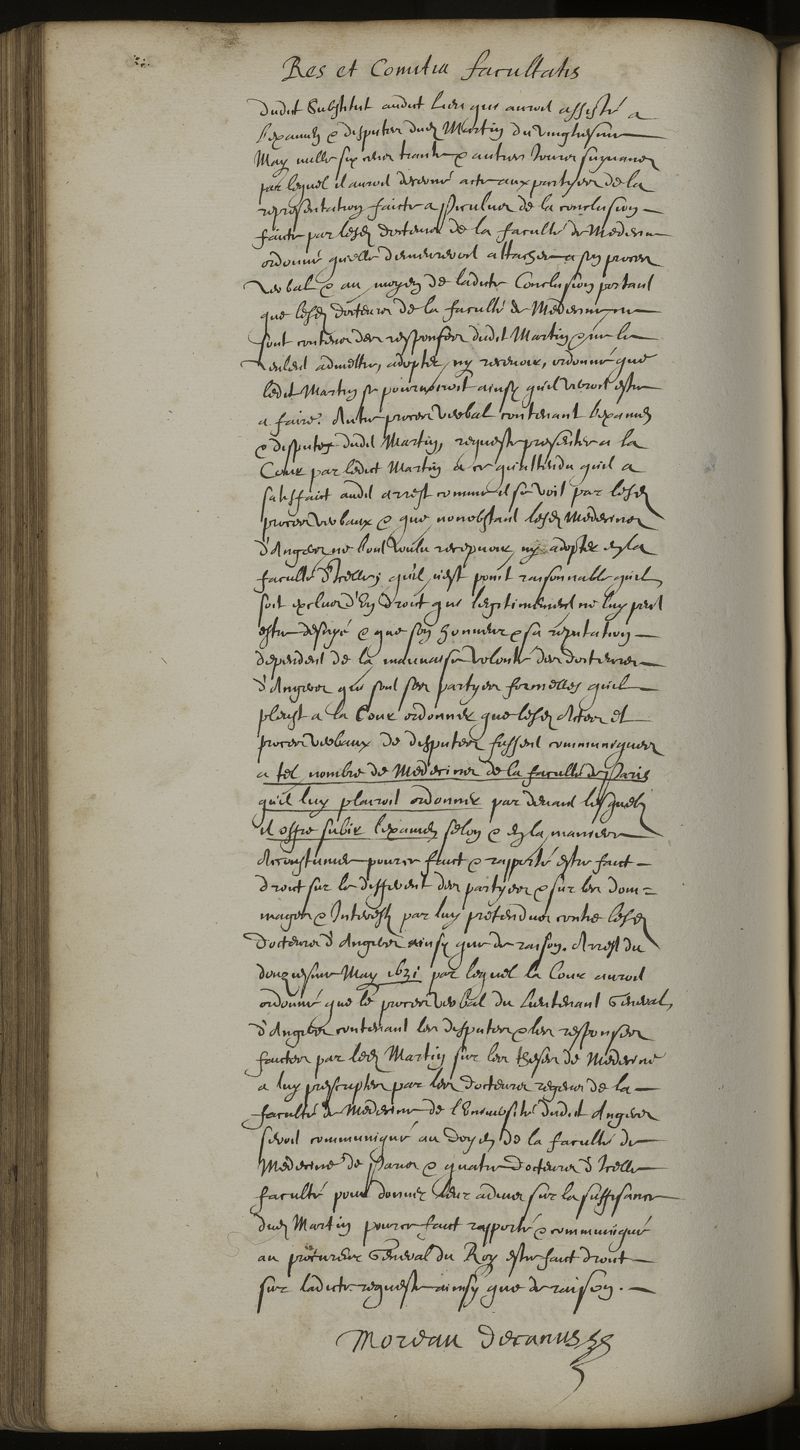 Res et Comitia facultatis
dudit Substitut audit Lieu qui auroit assisté a
l'examen & disputes dud Martin du vingtiesme
May mille six cens trante & autres Jours suyvans
par lequel il auroit decerné acte aux partyes de la
representation faicte a Piculus de la conclusion
faicte par lesd docteurs de la faculté de Medecine
ordonné quelle demeureroit attachée a son proces
verbal & au moyen de ladicte Conclusion portant
que lesd docteurs de la faculté de Medecine ne
sont contens des responses dudit Martin & ne le
veulent admettre, adopter, ny recevoir, ordonné que
ledit Martin se pourvoiroit ainsy qu'il verroit estre
a faire. Autre proces verbal contenant l'examen
& disputes dudit Martin, requeste presentee a la
Cour par ledict Martin a ce qu'attendu qu'il a
satisfaict audit arrest comme il se voit par lesd
proces verbaux & que nonobstant lesd Medecins
d'Angers ne l'ont voulu recepvoir, ny adopter en la
faculté d'Icelles qu'il n'est point raisonnable qu'il
soit exclus d'Un droit qui legitimement ne luy peut
estre desnyé & que son honneur & sa reputation
dependent de la mauvaise volonté des docteurs
d'Angers qui sont ses partyes formelles qu'il
pleust a la Cour ordonner que lesd Actes et
proces verbaux de disputes fussent communiquees
a tel nombre de Medecins de la faculté de Paris
qu'il luy plairoit ordonner par devant lesquelz
il offre subir l'examen selon & en la maniere
Accoustumee pour ce faict & rapporté estre faict
droit sur le different des partyes & sur les dom=
mages & Interestz par luy pretendus contre lesd
docteurs d'Angers ainsy que de raison. Arrest du
douziesme May 1631 par lequel la Cour auroit
ordonné que le proces verbal du Lieutenant General
d'Angers contenant les disputes & les responses
faictes par led Martin sur les theses de Medecine
a luy prescriptes par les docteurs regens de la
faculté de Medecine de l'Université dudit Angers
seroit communiqué au doyen de la faculté de
Medecine de Paris & quatre docteurs d'Icelle
faculté pour donner leur advis sur la suffisance
dud Martin pour ce faict rapporté & communiqué
au procureur General du Roy estre faict droit
sur ladicte requeste ainsy que de raison.
Moreau decanus